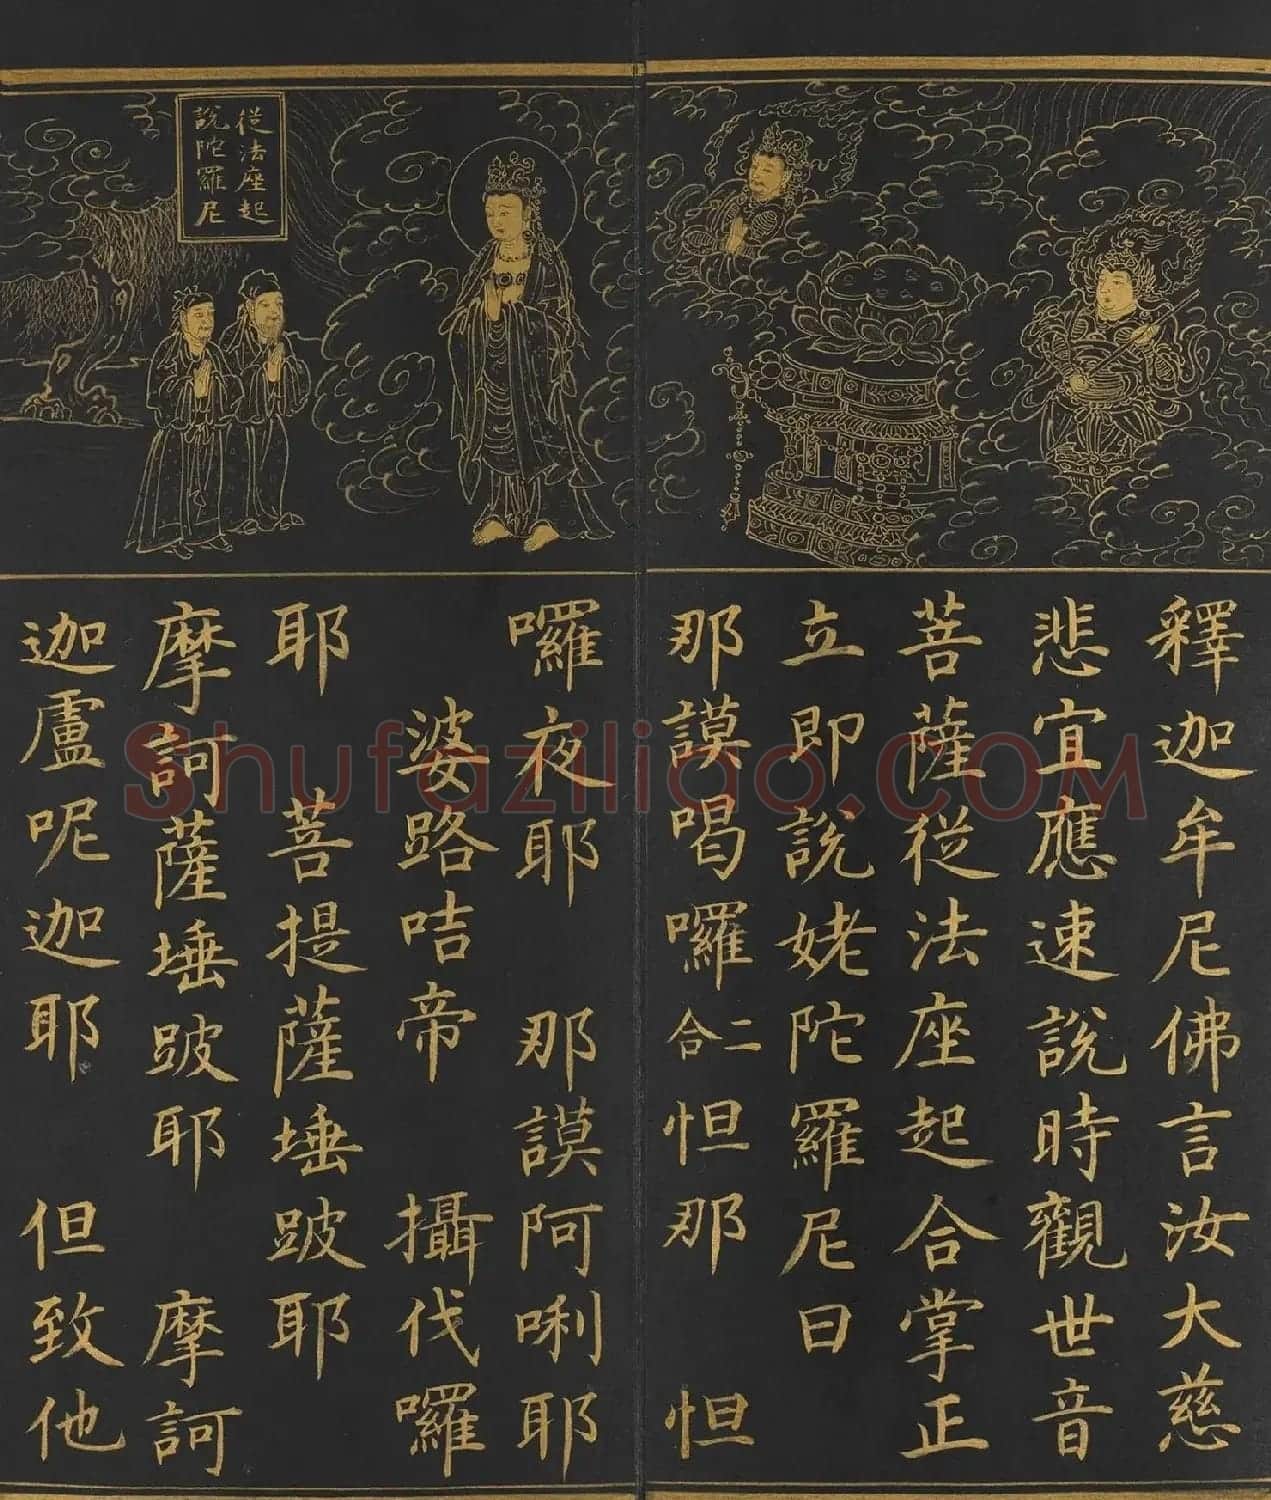 從法座起
說陀羅尼
釋迦牟尼佛言汝大慈
悲宜應速說時觀世音
菩薩從法座起合掌正
立即說姥陀羅尼曰
那謨喝囉二合怛那 怛
囉夜耶 那謨阿唎耶
婆路咭帝 攝伐囉
耶 菩提薩埵跛耶
摩訶薩埵跛耶 摩訶
迦盧呢迦耶 但致他
Shufaziliao.COM